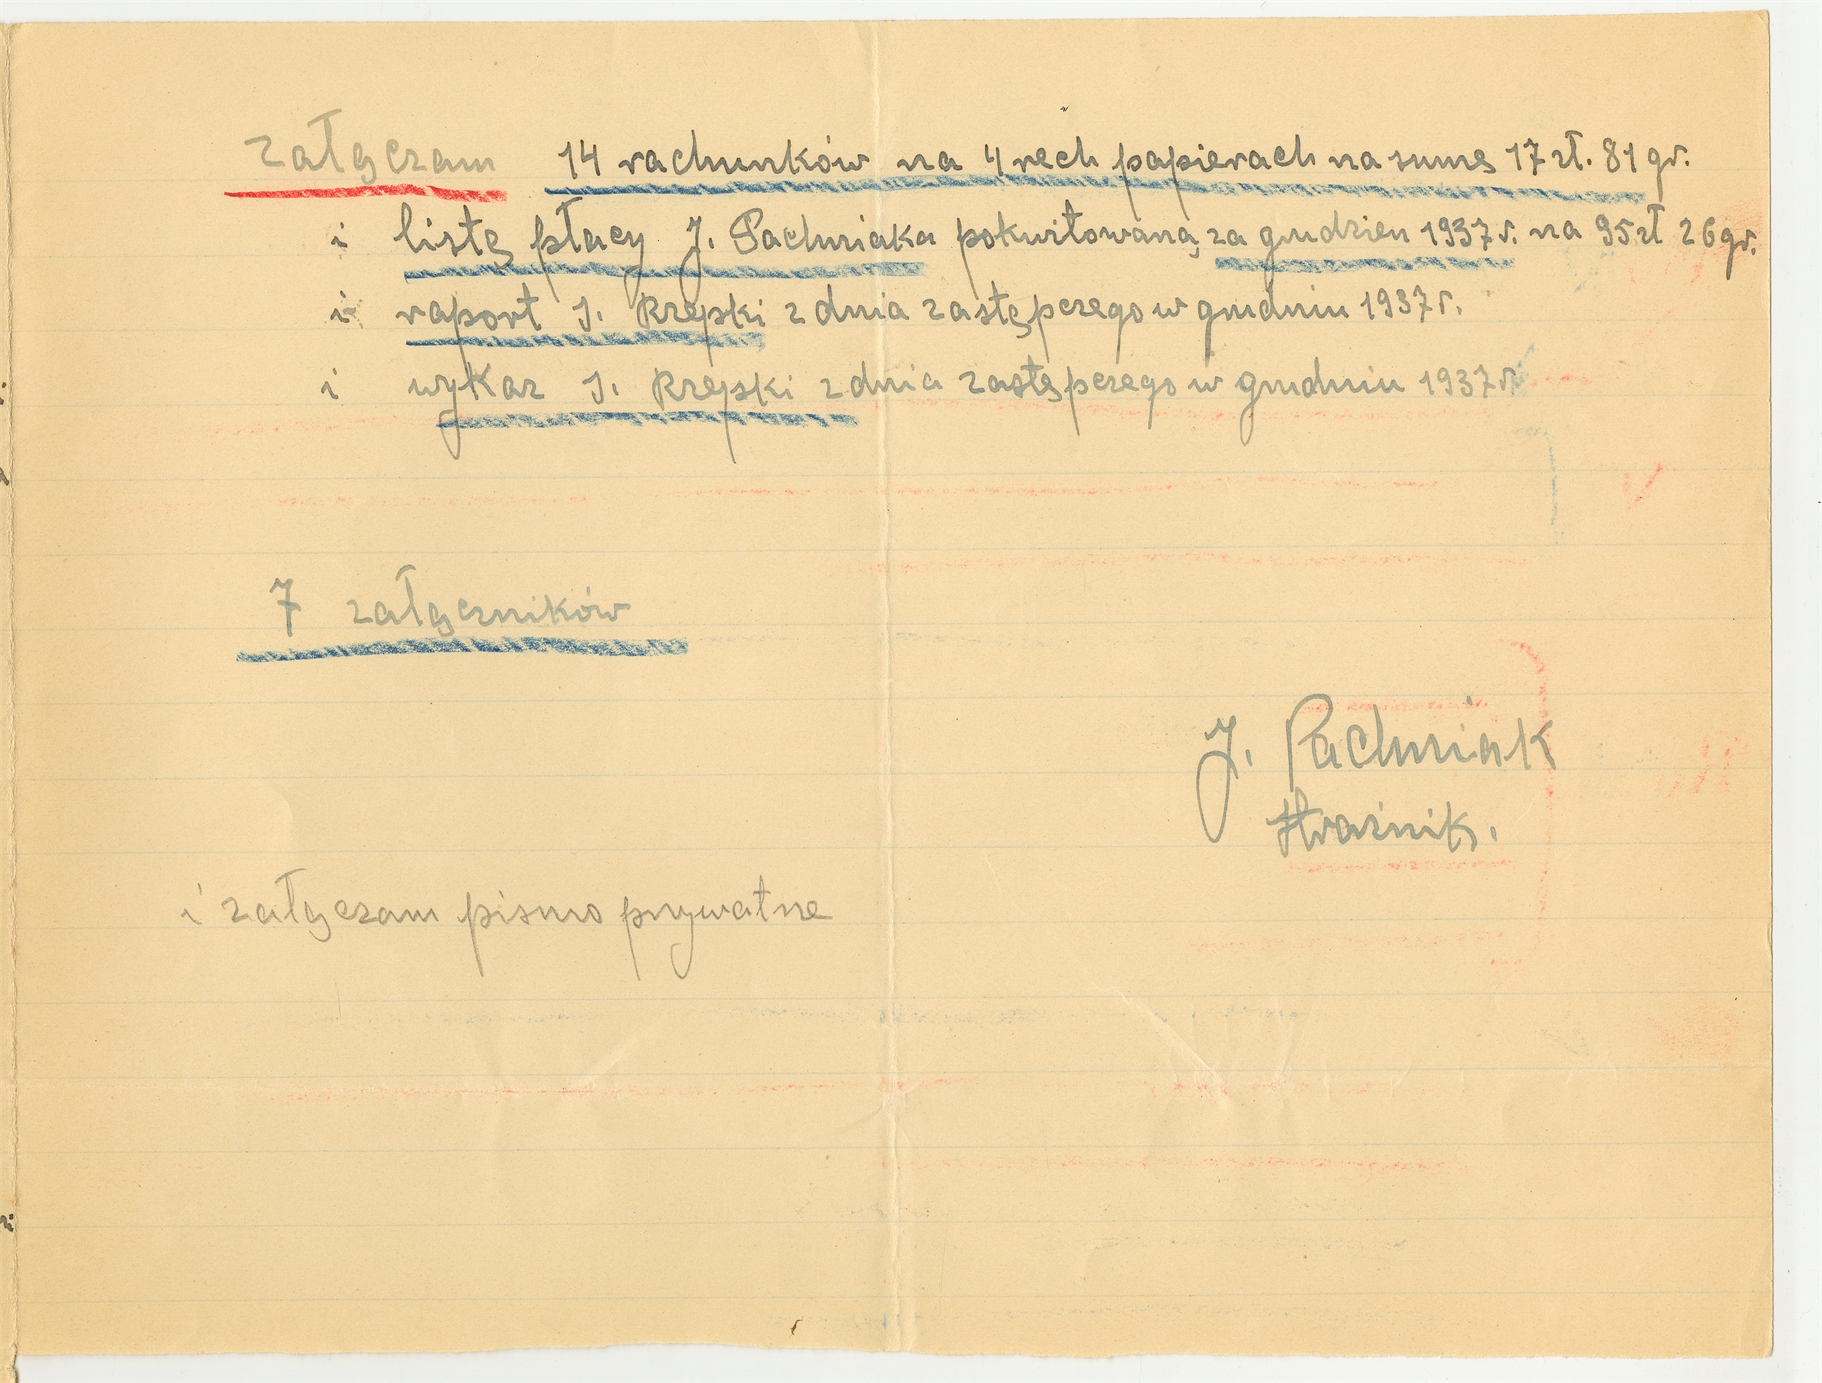 załączam 14 rachunków na 4 rech papierach na sumę 17 zł. 81 gr.
i listę płacy J. Pachniaka pokwitowaną za grudzien 1937 r. na 95 zł 26 gr.
i raport J. Krzepski z dnia zastępczego w grudniu 1937 r.
i wykaz J. Krzepski z dnia zastępczego w grudniu 1937 r.
7 załączników
J. Pachniak
strażnik.
i załączam pismo prywatne